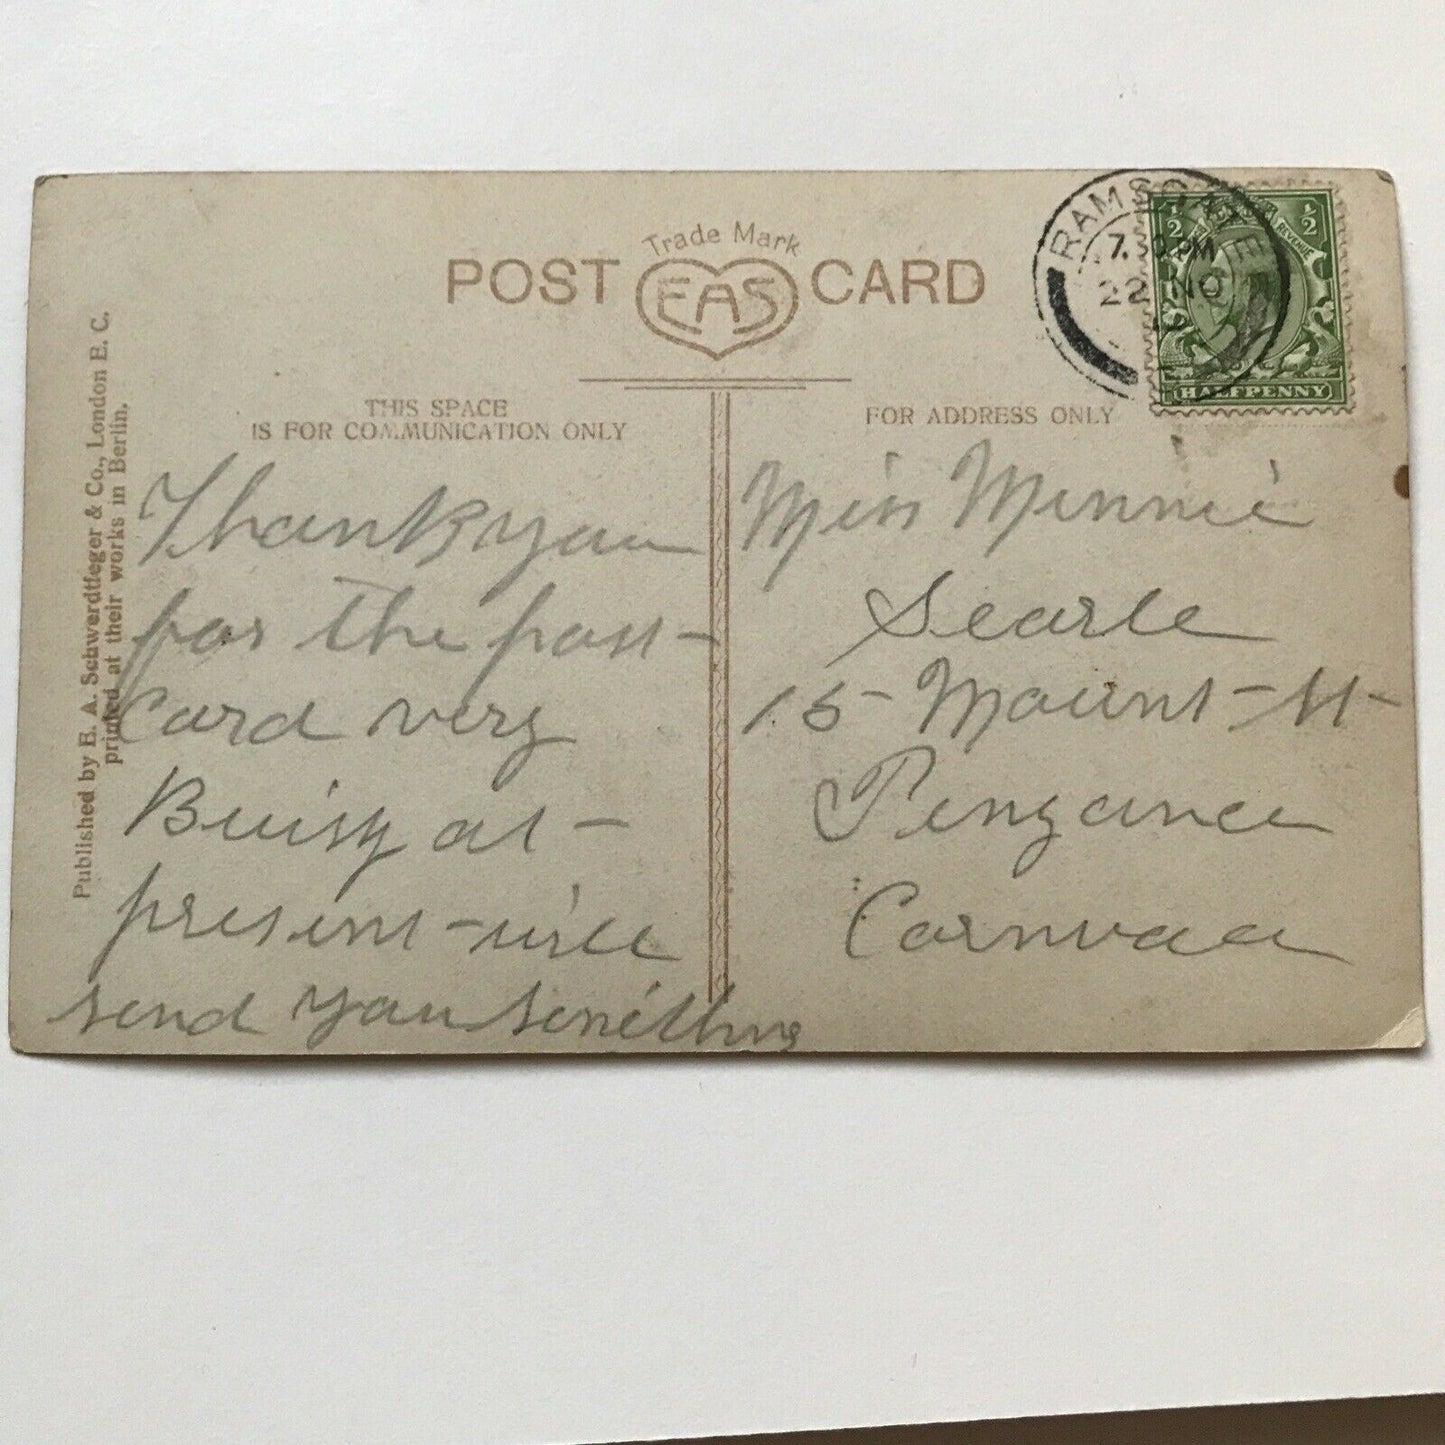 Trade Mark
POST EAS CARD
THIS SPACE
IS FOR COMMUNICATION ONLY
FOR ADDRESS ONLY
RAMSGATE
7.30PM
22 NO
½ ½
HALFPENNY
Published by E. A. Schwerdtfeger & Co., London E. C.
printed at their works in Berlin.
Thank you
for the post-
Card very
Buisy at
present will
send you something
Miss Minnie
Searle
15 Mount St
Penzance
Cornwall